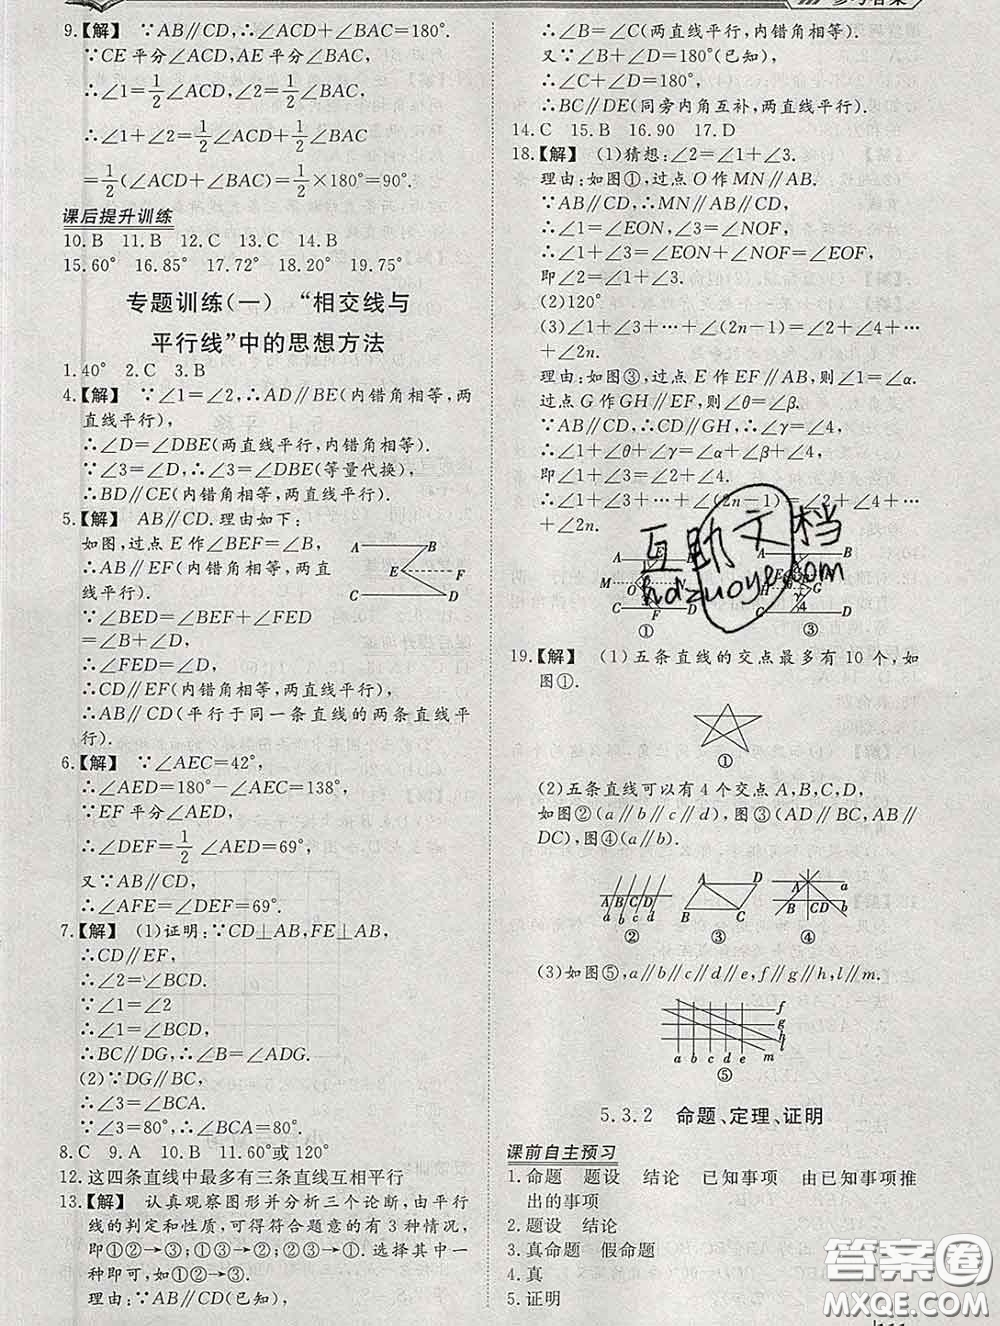 参考答案
9.【解】 ∵AB∥CD,∴∠ACD+∠BAC=180°.
∵CE平分∠ACD,AE平分∠BAC,
∴∠1=1/2∠ACD,∠2=1/2∠BAC.
∴∠1+∠2=1/2∠ACD+1/2∠BAC
=1/2(∠ACD+∠BAC)=1/2×180°=90°.
课后提升训练
10.B 11.B 12.C 13.C 14.B
15.60° 16.85° 17.72° 18.20° 19.75°
专题训练(一) “相交线与
平行线”中的思想方法
1.40° 2.C 3.B
4.【解】 ∵∠1=∠2,∴AD∥BE(内错角相等,两
直线平行),
∴∠D=∠DBE(两直线平行,内错角相等).
∵∠3=∠D,∴∠3=∠DBE(等量代换),
∴BD∥CE(内错角相等,两直线平行).
5.【解】 AB∥CD.理由如下:
如图,过点E作∠BEF=∠B,
∴AB∥EF(内错角相等,两
直线平行).
∵∠BED=∠BEF+∠FED
=∠B+∠D,
∴∠FED=∠D,
∴CD∥EF(内错角相等,两直线平行),
∴AB∥CD(平行于同一条直线的两条直线平
行).
A B
E F
C D
6.【解】 ∵∠AEC=42°,
∴∠AED=180°-∠AEC=138°,
∵EF平分∠AED,
∴∠DEF=1/2 ∠AED=69°,
又∵AB∥CD,
∴∠AFE=∠DEF=69°.
7.【解】 (1)证明:∵CD⊥AB,FE⊥AB,
∴CD∥EF,
∴∠2=∠BCD.
∵∠1=∠2
∴∠1=∠BCD,
∴BC∥DG,∴∠B=∠ADG.
(2)∵DG∥BC,
∴∠3=∠BCA.
∵∠3=80°,∴∠BCA=80°.
8.C 9.A 10.B 11.60°或120°
12.这四条直线中最多有三条直线互相平行
13.【解】 认真观察图形并分析三个论断,由平行
线的判定和性质,可得符合题意的有3种情况,
即①②→③;①③→②;②③→①.选择其中一
种即可,如①②→③.
理由:∵AB∥CD(已知),
∴∠B=∠C(两直线平行,内错角相等).
又∵∠B+∠D=180°(已知),
∴∠C+∠D=180°,
∴BC∥DE(同旁内角互补,两直线平行).
14.C 15.B 16.90 17.D
18.【解】 (1)猜想:∠2=∠1+∠3.
理由:如图①,过点O作MN∥AB.
∵AB∥CD,∴MN∥AB∥CD,
∴∠1=∠EON,∠3=∠NOF,
∴∠1+∠3=∠EON+∠NOF=∠EOF,
即∠2=∠1+∠3.
(2)120°
(3)∠1+∠3+…+∠(2n-1)=∠2+∠4+
…+∠2n.
理由:如图③,过点E作EF∥AB,则∠1=∠α.
过点G作GH∥EF,则∠θ=∠β.
∵AB∥CD,∴CD∥GH,∴∠γ=∠4,
∴∠1+∠θ+∠γ=∠α+∠β+∠4,
即∠1+∠3=∠2+∠4,
∴∠1+∠3+…+∠(2n-1)=∠2+∠4+…
+∠2n.
互助文档
hdzuoye.com
A E B
M O N
C F D
①
A B
C D
③
19.【解】 (1)五条直线的交点最多有10个,如
图①.
①
(2)五条直线可以有4个交点A,B,C,D,
如图②(a∥b∥c∥d),图③(AD∥BC,AB∥
DC),图④(a∥b).
A B C D
a b c d
②
A D
B C
③
A a
B C D b
④
(3)如图⑤,a∥b∥c∥d∥e,f∥g∥h,l∥m.
f
g
h
l
a b c d e m
⑤
5.3.2 命题、定理、证明
课前自主预习
1.命题 题设 结论 已知事项 由已知事项推
出的事项
2.题设 结论
3.真命题 假命题
4.真
5.证明
答案圈
MXQE.COM